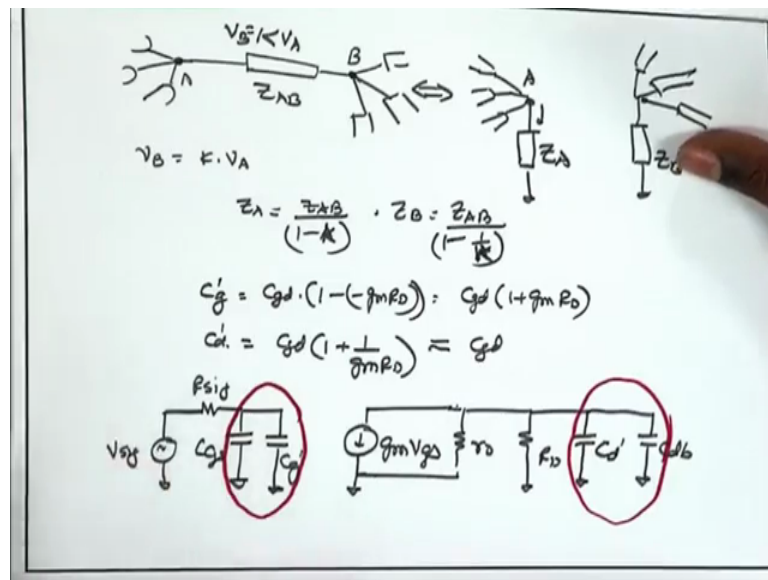 V_B = K V_A
A
Z_AB
B
⇔
A
Z_A
V_B = K. V_A
Z_A = Z_AB/(1-K) . Z_B = Z_AB/(1-1/K)
C'g = Cgd.(1-(-gmR_D)) = Cgd(1+gmR_D)
C'd. = Cgd(1+1/gmR_D) ≈ Cgd
Rsig
Vsig
Cgs
Cg'
gmVgs
ro
R_D
Cd'
Cdb